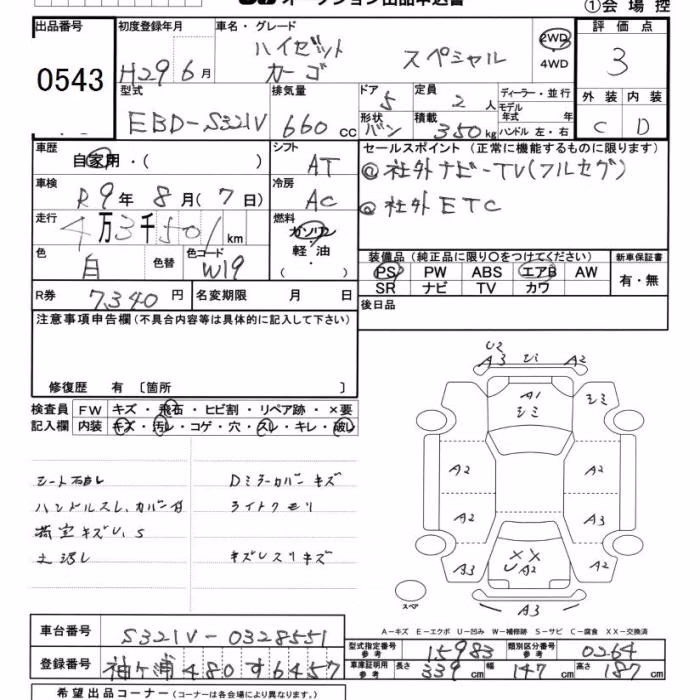 オークション出品申込書
①会場控
出品番号
0543
初度登録年月
H29 6月
車名・グレード
ハイゼット
カーゴ
スペシャル
2WD
4WD
評価点
3
外装 内装
C D
型式
EBD-S321V
排気量
660 cc
ドア
5
形状
バン
定員
2人
積載
350kg
ディーラー・並行
モデル
年式 年
ハンドル 左・右
車歴
自家用・( )
シフト
AT
車検
R9年 8月(7日)
冷房
AC
走行
4万3千501 km
燃料
ガソリン
軽油
・
( )
色
白
色替
色コード
W19
R券
7,340 円
名変期限 月 日
セールスポイント(正常に機能するものに限ります)
◎社外ナビ-TV(フルセグ)
◎社外ETC
装備品(純正品に限り○をつけてください)
PS PW ABS エアB AW
SR ナビ TV カワ
新車保証書
有・無
後日品
注意事項申告欄(不具合内容等は具体的に記入して下さい)
修復歴 有〔箇所 〕
検査員
記入欄
FW キズ・飛石・ヒビ割・リペア跡・×要
内装 キズ・汚レ・コゲ・穴・スレ・キレ・破レ
Dミラーカバーキズ
ハンドルスレ、カバー付
ライトクモリ
荷室キズU、S
キズUスリキズ
U2
A3 A2
A1
A2 A2
A2 A3
A3 XX A2
UA2
A3
スペア
A-キズ E-エクボ U-凹み W-補修跡 S-サビ C-腐食 XX-交換済
車台番号
S321V-0328551
登録番号
袖ヶ浦 480 す 6457
型式指定番号
参考
15983
類別区分番号
参考
0264
車庫証明用
参考
長さ 339cm 幅 147cm 高さ 187cm
希望出品コーナー(コーナーは各会場により異なります。)